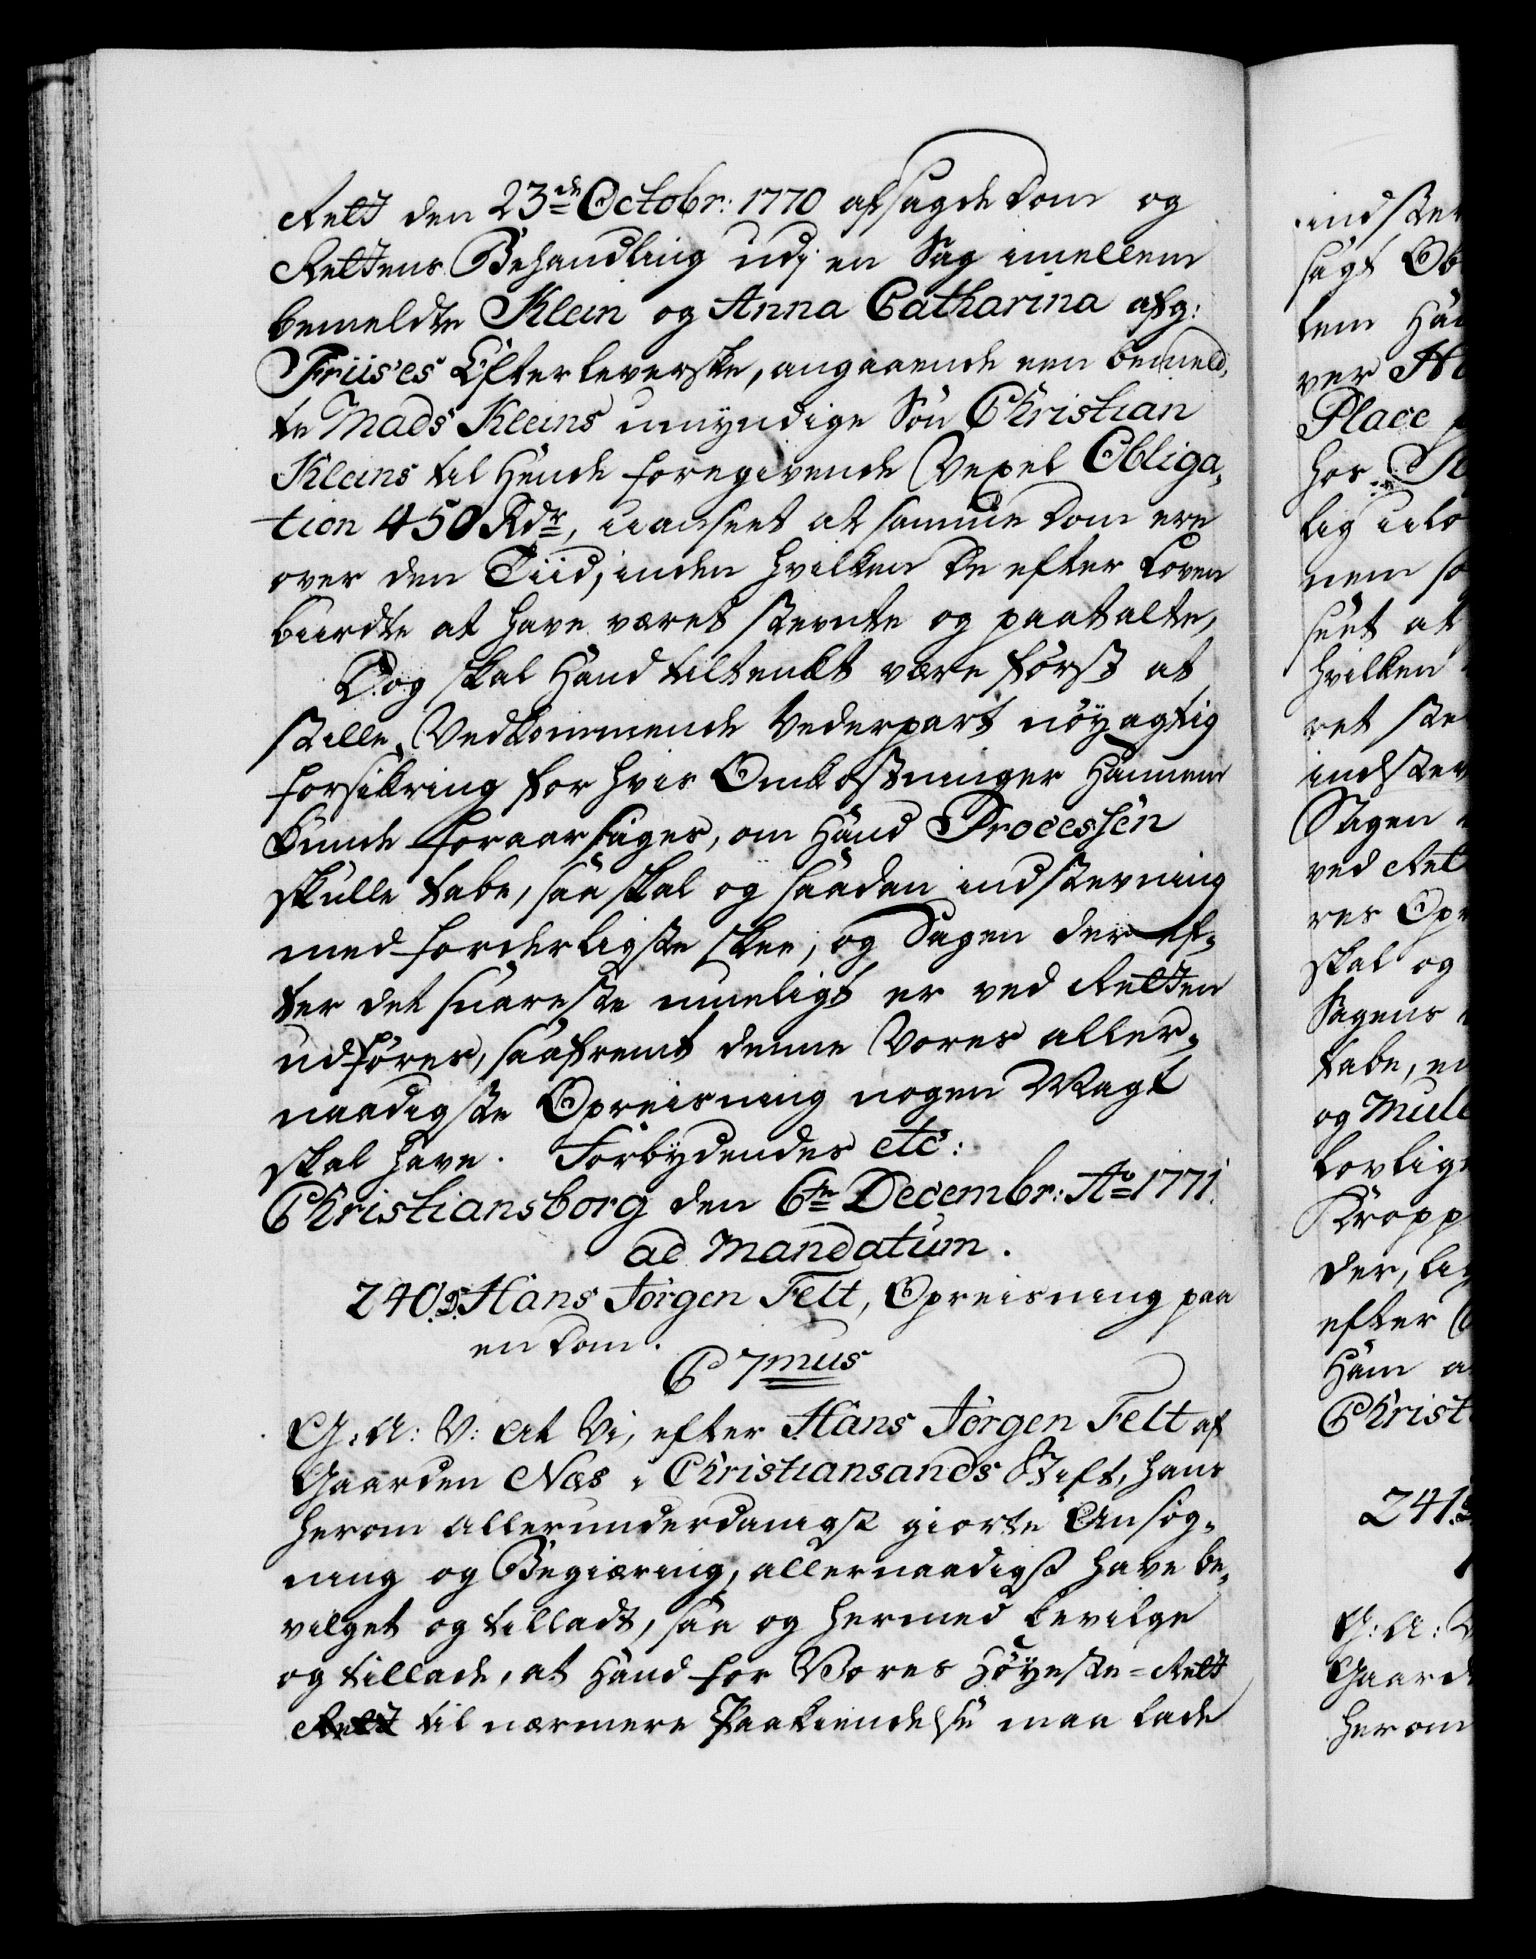 Rett den 23de Octobr: 1770 afsagde Dom og
Rettens Behandling udj en Sag imellem
bemeldte Klein og Anna Catharina afg:
Friis'es Efterleverske, angaaende een bemeld,
te Mads Kleins umyndige Søn Christian
Kleins til Hende foregivende Vexel Obliga,
tion 450 Rdr, uanseet at samme Dom ere
over den Tiid, inden hvilken De efter Loven
burdte at have været stevnte og paatalte,
Dog skal Hand tiltenkt være først at
stille Vedkommende Vederpart nöyagtig
forsikring for hvis Omkostninger Hannem
kunde foraarsages, om Hand Processen
skulle tabe, saa skal og saadan indstevning
med forderligste skee, og Sagen der ef,
ter det snareste mueligt er ved Retten
udføres, saafremt denne Vores aller,
naadigste Opreisning nogen Magt
skal have. Forbydendes etc:
Christiansborg den 6te Decembr: Ao 1771.
ad Mandatum.
240. Hans Jørgen Felt, Opreisning paa
en Dom.
C 7mus
G: A: V: At Vi, efter Hans Jørgen Felt af
Gaarden Næs i Christiansands Stift, hans
herom allerunderdanigst giorte Ansøg,
ning og Begiæring, allernaadigst have be,
vilget og tilladt, saa og hermed bevilge
og tillade, at Hand for Vores Höyeste-Rett
Rett til nærmere Paakiendelse maa lade
indstev
sagt Ob
lem Han
ver
Place
hos
lig
nem
seet at
hvilken
ret ste
indstev
Sagen
ved Ret
res Opr
skal og
Sagens
tabe,
og Mul
lovlig
Kropp
der,
efter
Ham
Christ
241.
G: A: V
Gaard
herom